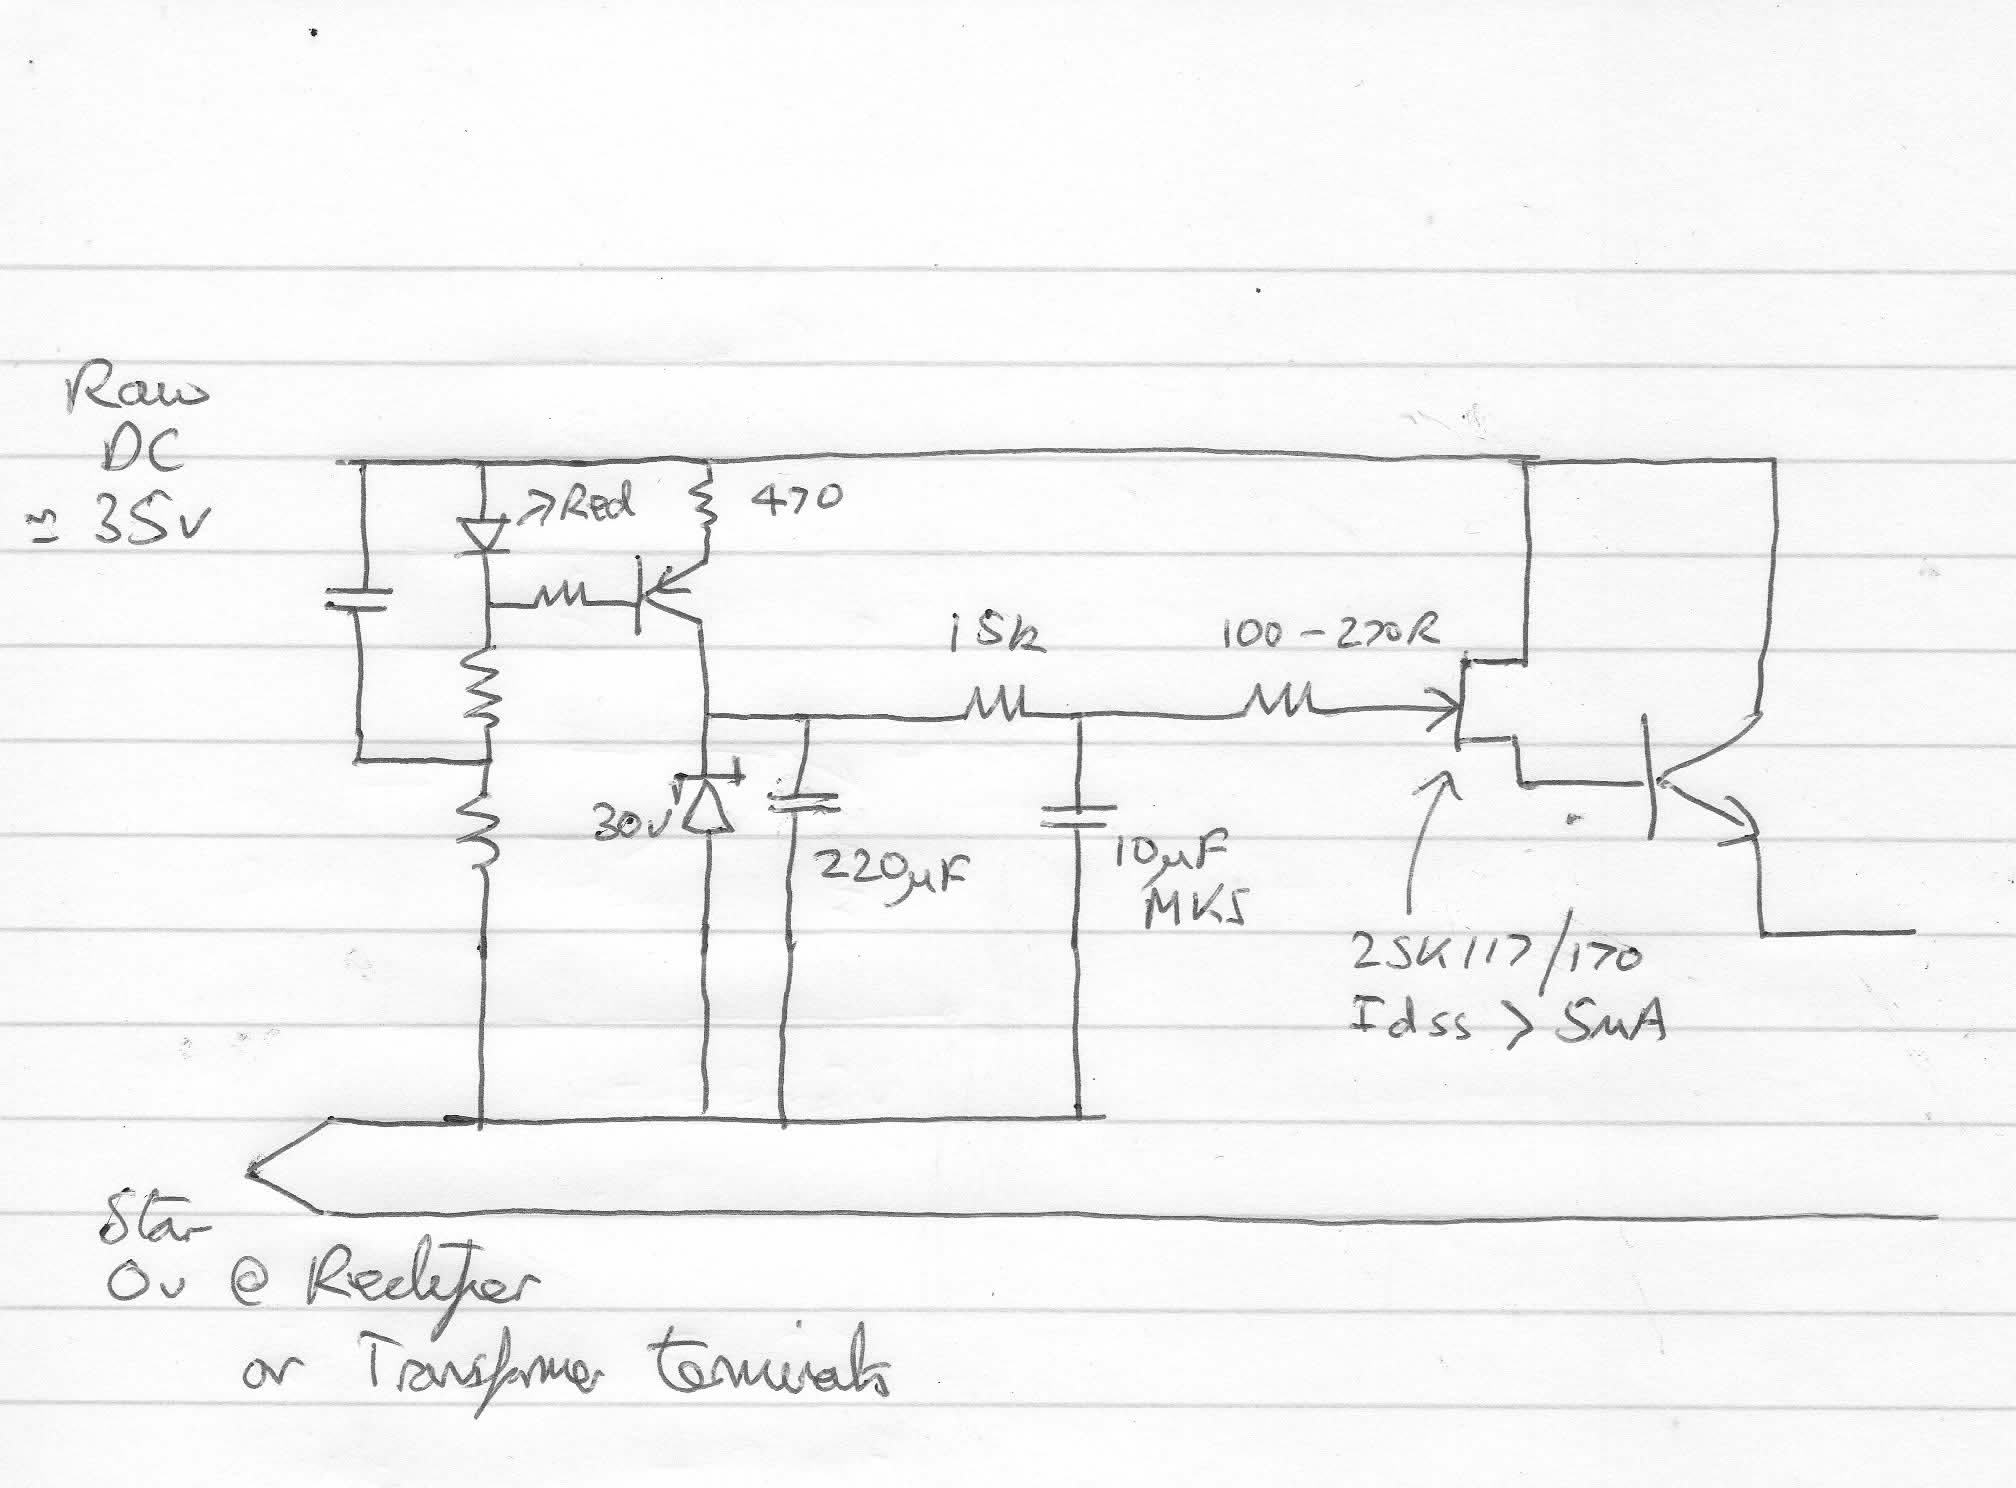 Raw
DC
≃ 35v
Red
470
15k
100-270R
30v
220µF
10µF
MKS
2SK117/170
Idss > 5mA
Star
0v @ Rectifier
or Transformer terminals